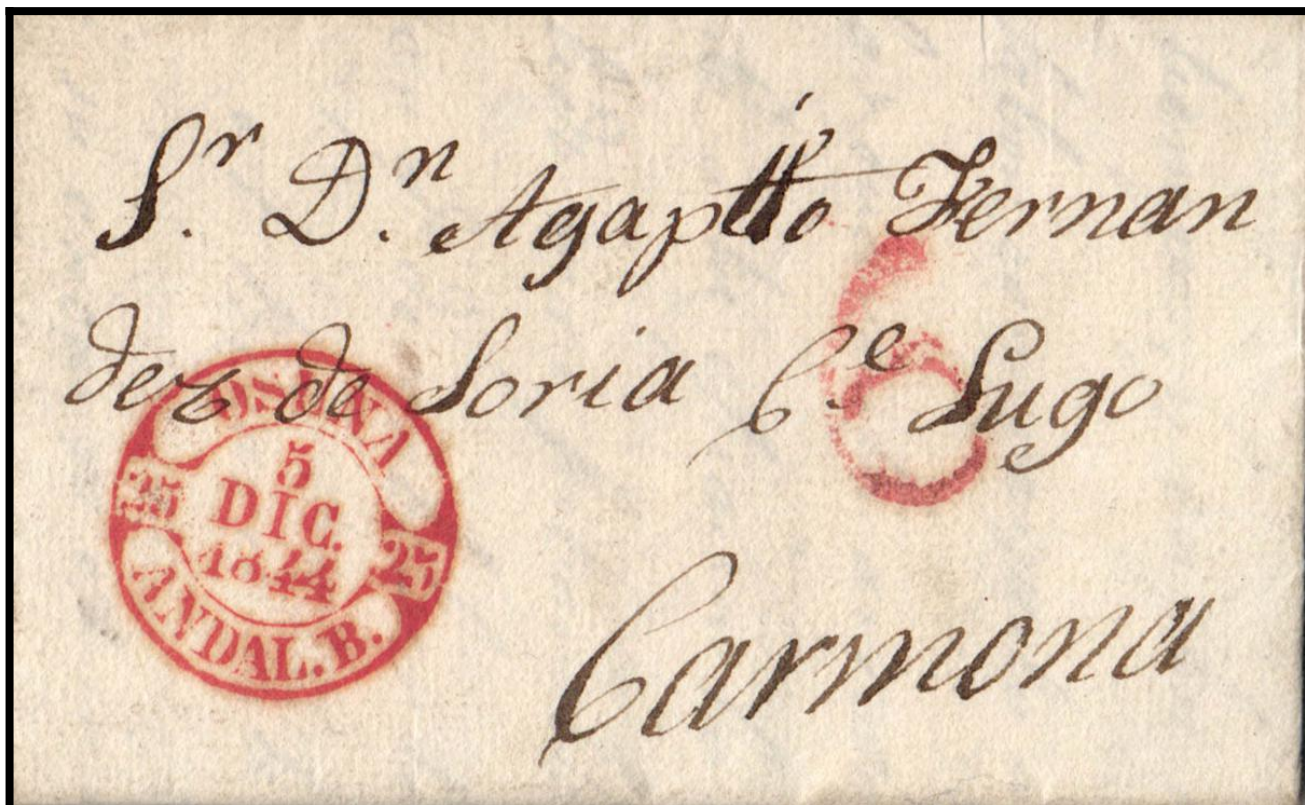 Sr. Dn. Agapito Fernan
dez de Soria Ce. Lugo
6
OSUNA
25 5 25
DIC.
1844
ANDAL. B.
Carmona